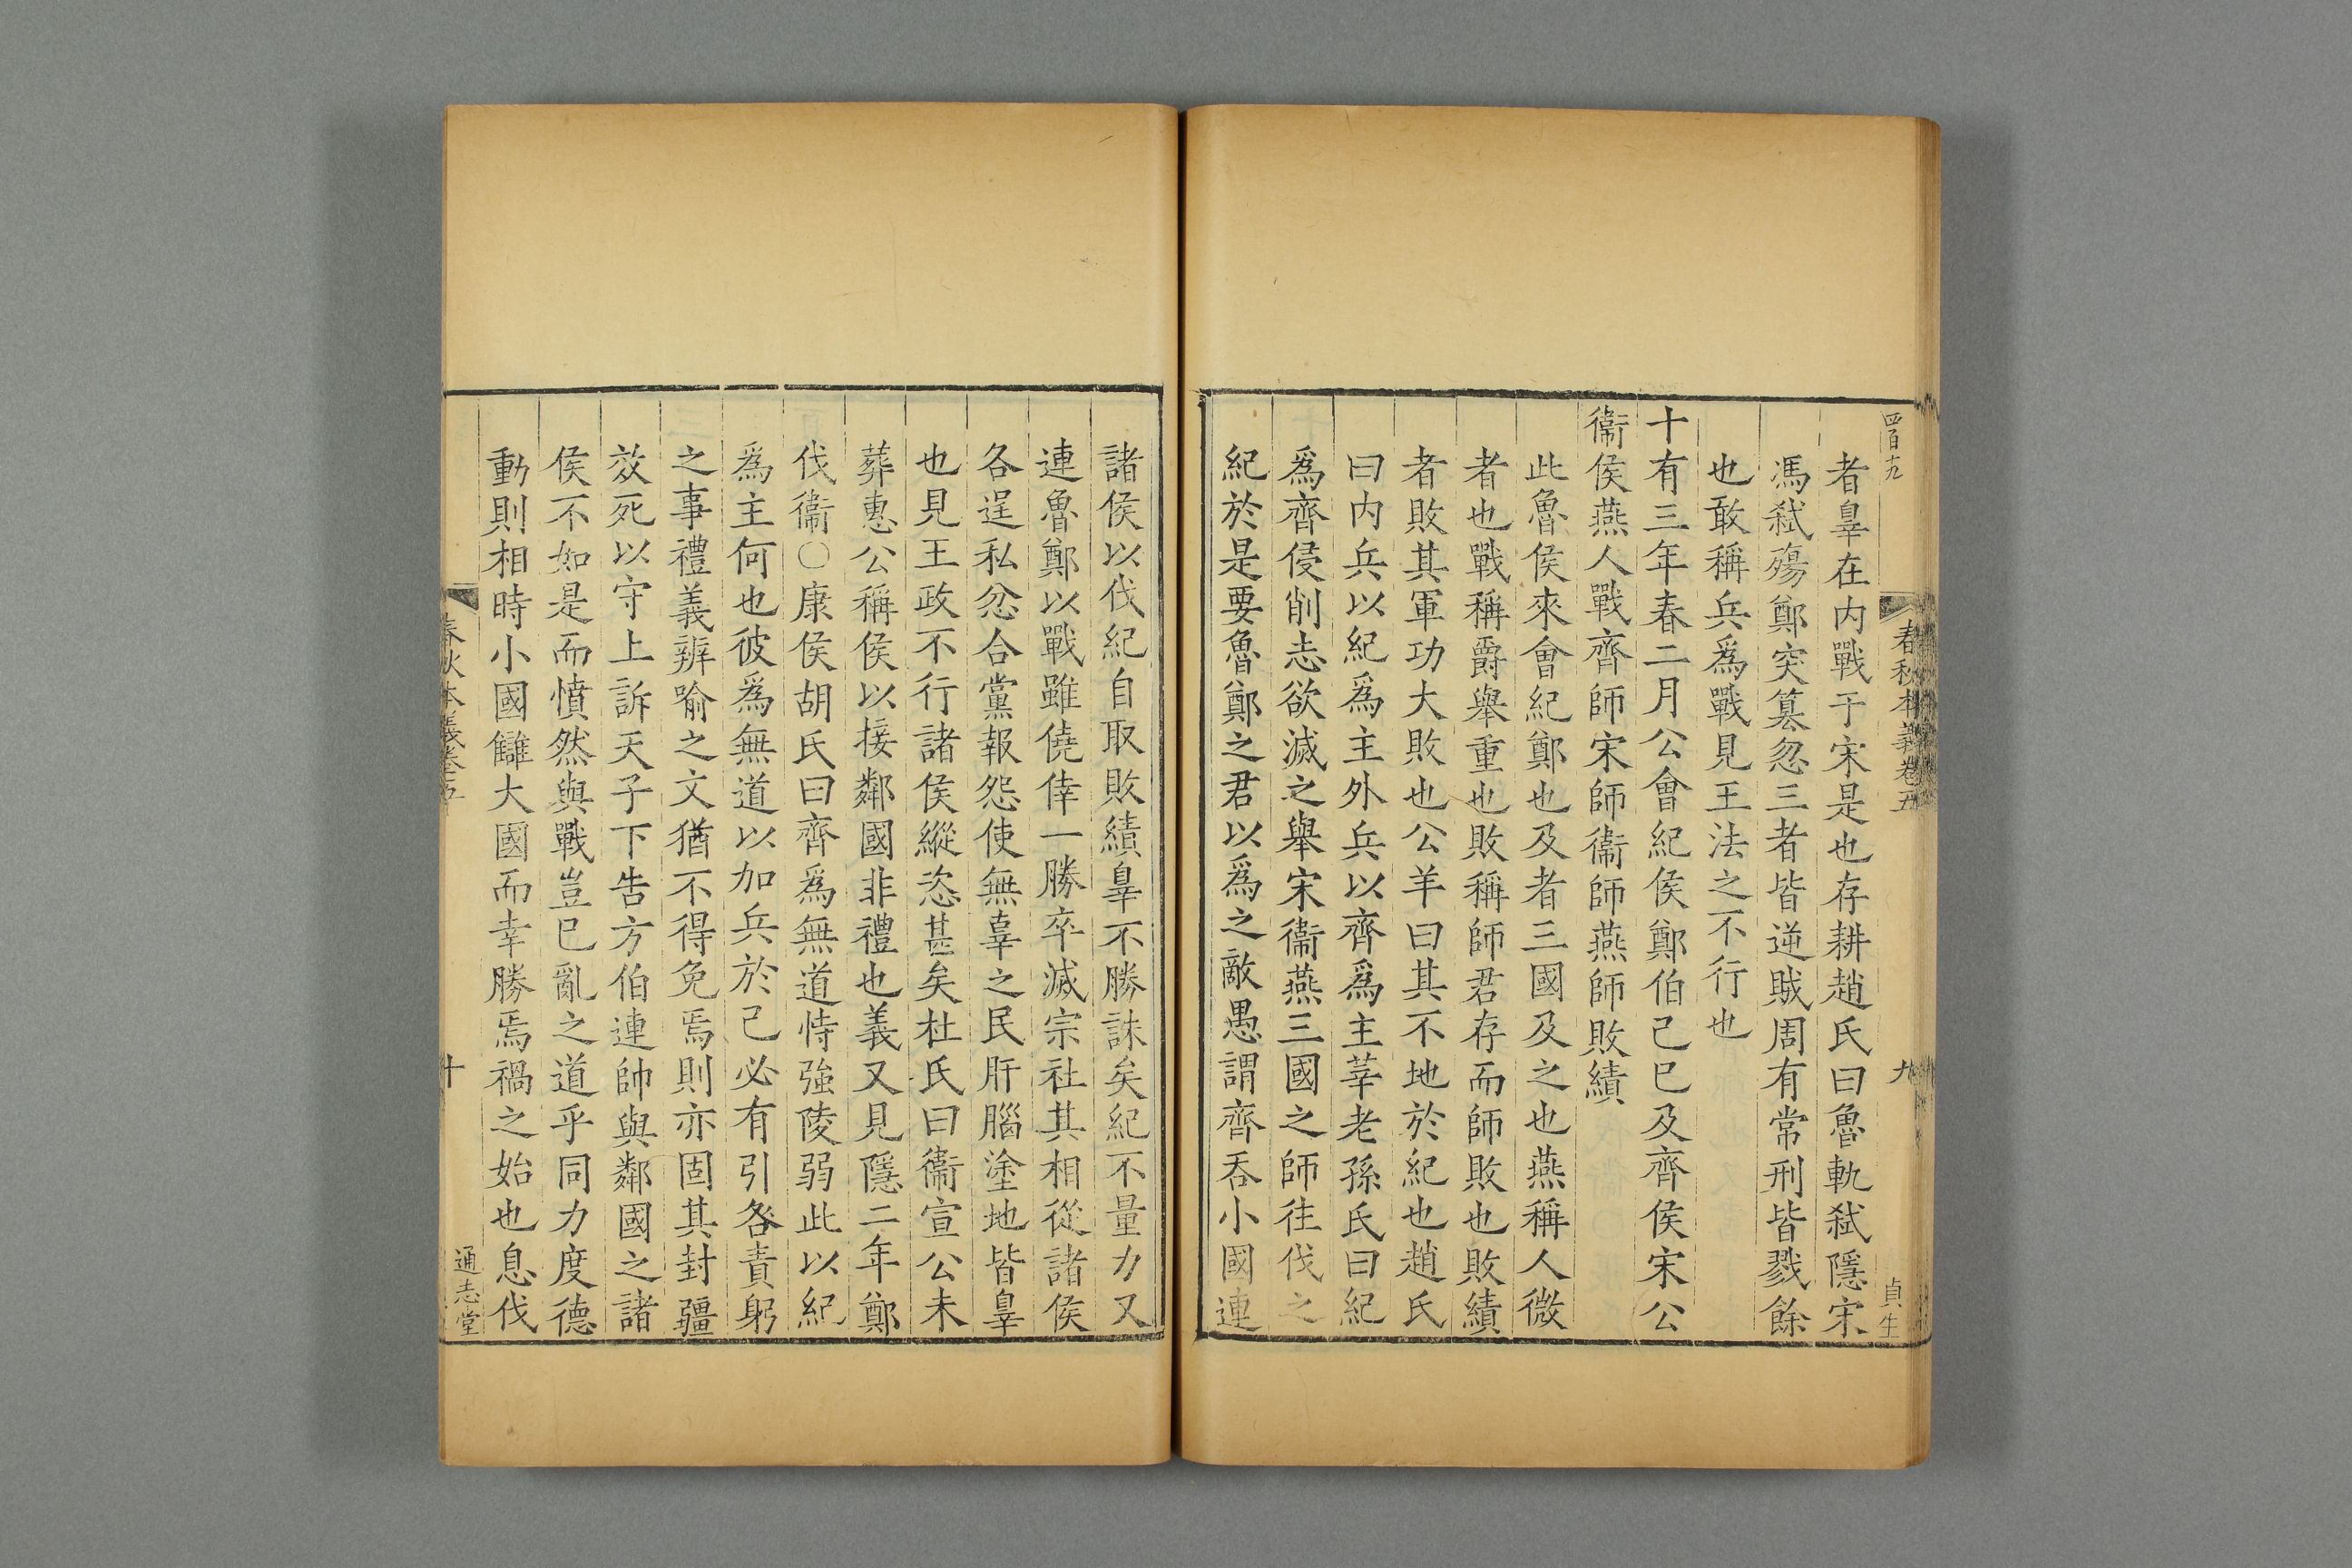 四百十九
春秋本義卷五
九
貞生
者辠在内戰于宋是也存耕趙氏曰魯軌弑隱宋
馮弑殤鄭突篡忽三者皆逆賊周有常刑皆戮餘
也敢稱兵爲戰見王法之不行也
十有三年春二月公會紀侯鄭伯己巳及齊侯宋公
衞侯燕人戰齊師宋師衞師燕師敗績
此魯侯來會紀鄭也及者三國及之也燕稱人微
者也戰稱爵舉重也敗稱師君存而師敗也敗績
者敗其軍功大敗也公羊曰其不地於紀也趙氏
曰内兵以紀爲主外兵以齊爲主莘老孫氏曰紀
爲齊侵削志欲滅之舉宋衞燕三國之師往伐之
紀於是要魯鄭之君以爲之敵愚謂齊吞小國連
諸侯以伐紀自取敗績辠不勝誅矣紀不量力又
連魯鄭以戰雖僥倖一勝卒滅宗社其相從諸侯
各逞私忿合黨報怨使無辜之民肝腦塗地皆辠
也見王政不行諸侯縱恣甚矣杜氏曰衞宣公未
葬惠公稱侯以接鄰國非禮也義又見隱二年鄭
伐衞〇康侯胡氏曰齊爲無道恃強陵弱此以紀
爲主何也彼爲無道以加兵於己必有引咎責躬
之事禮義辨喻之文猶不得免焉則亦固其封疆
效死以守上訴天子下告方伯連帥與鄰國之諸
侯不如是而憤然與戰豈已亂之道乎同力度德
動則相時小國讎大國而幸勝焉禍之始也息伐
春秋本義卷五
十
通志堂